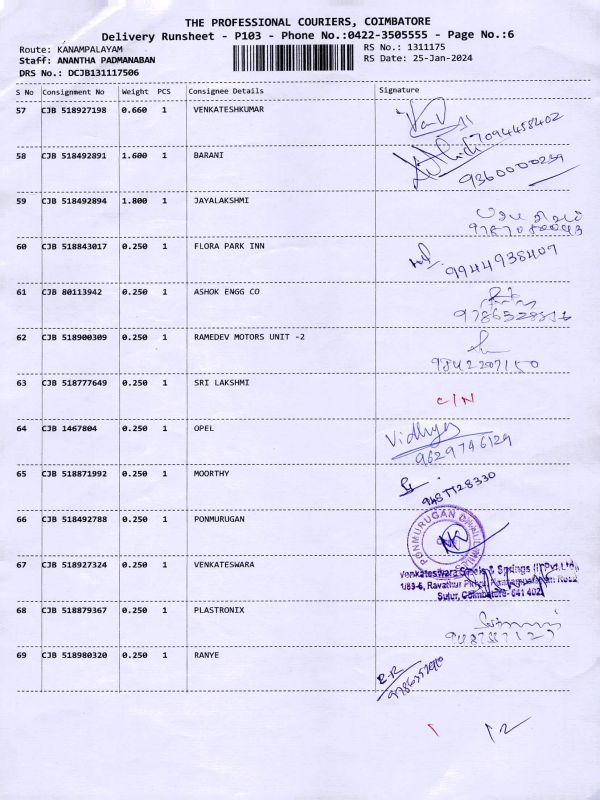 THE PROFESSIONAL COURIERS, COIMBATORE
Delivery Runsheet - P103 - Phone No.:0422-3505555 - Page No.:6
Route: KANAMPALAYAM
RS No.: 1311175
Staff: ANANTHA PADMANABAN
RS Date: 25-Jan-2024
DRS No.: DCJB131117506
S No Consignment No Weight PCS Consignee Details Signature
57 CJB 518927198 0.660 1 VENKATESHKUMAR
7094458402
58 CJB 518492891 1.600 1 BARANI
9360000239
59 CJB 518492894 1.800 1 JAYALAKSHMI
60 CJB 518843017 0.250 1 FLORA PARK INN
9944938409
61 CJB 80113942 0.250 1 ASHOK ENGG CO
62 CJB 518900309 0.250 1 RAMEDEV MOTORS UNIT -2
9842207150
63 CJB 518777649 0.250 1 SRI LAKSHMI C/N
64 CJB 1467804 0.250 1 OPEL Vidhya
9629746129
65 CJB 518871992 0.250 1 MOORTHY
66 CJB 518492788 0.250 1 PONMURUGAN
PONMURUGAN
67 CJB 518927324 0.250 1 VENKATESWARA
Venkateswara Steels & Springs (I) Pvt. Ltd.,
Sulur, Coimbatore- 641 402
68 CJB 518879367 0.250 1 PLASTRONIX
69 CJB 518980320 0.250 1 RANYE
R.R
1 12